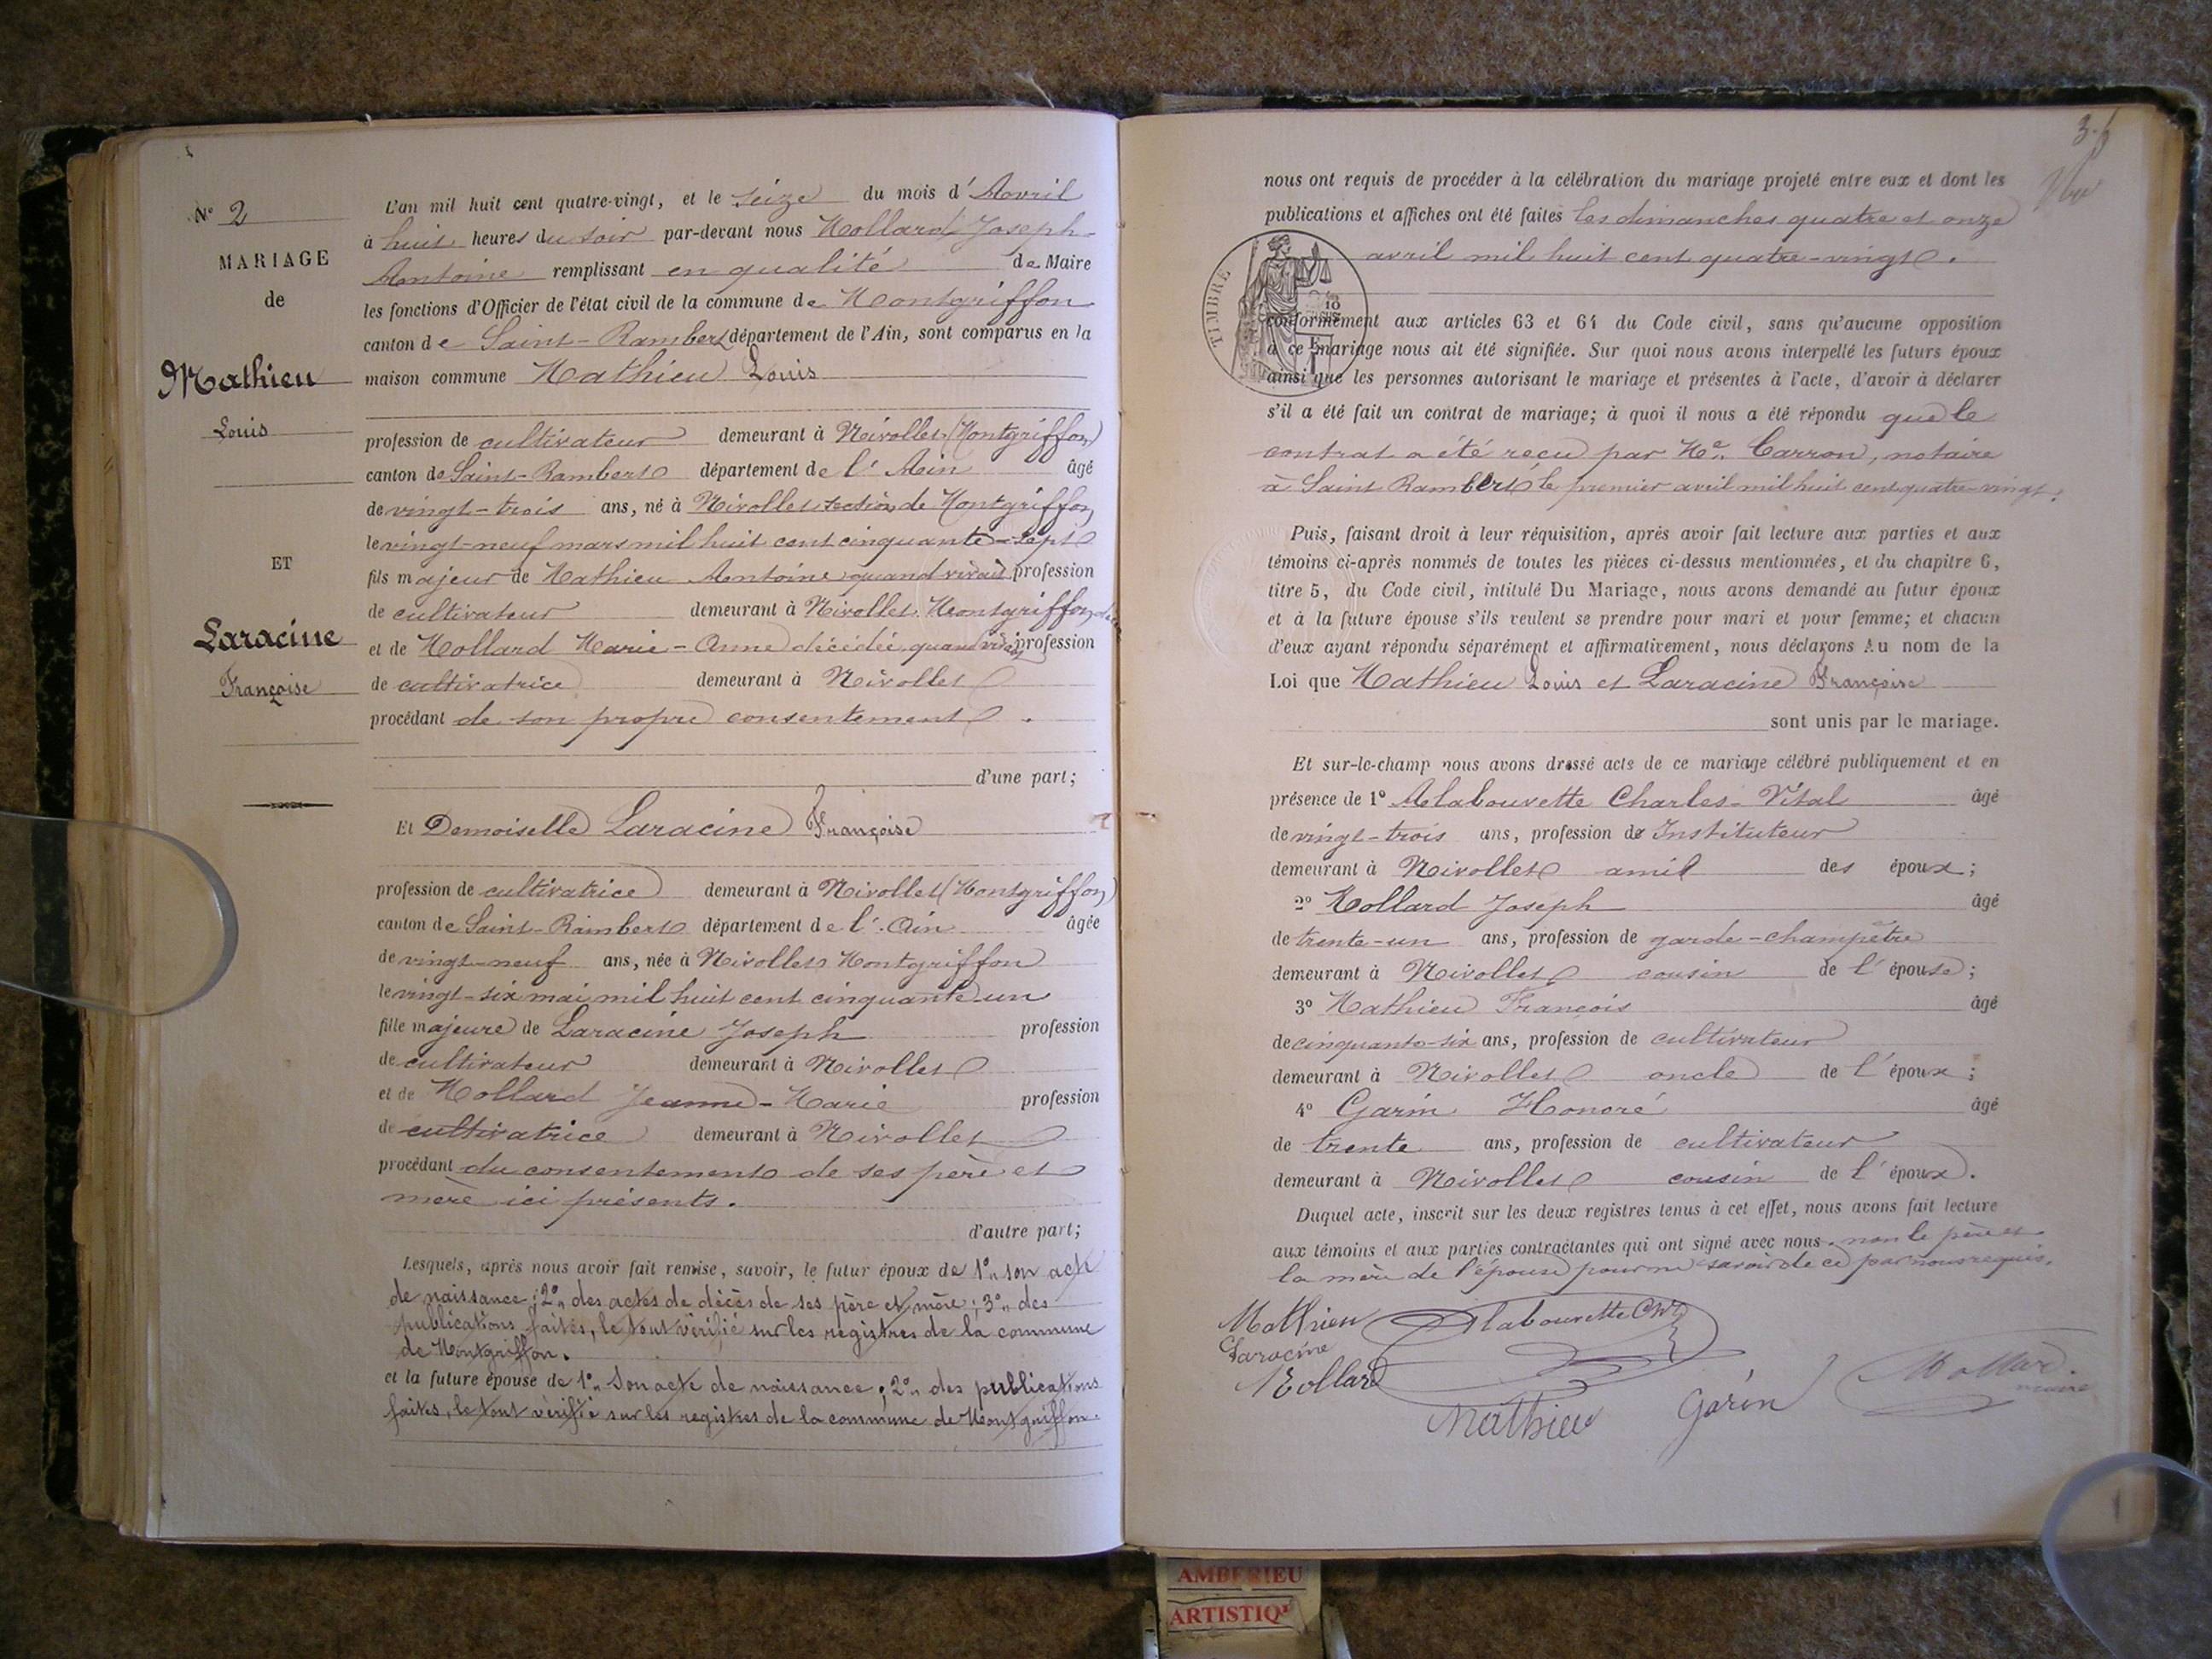 N° 2
MARIAGE
de
Mathieu
Louis
ET
Laracine
Françoise
L'an mil huit cent quatre-vingt, et le seize du mois d'Avril
à huit heures du soir par-devant nous Mollard Joseph-
Antoine remplissant en qualité de Maire
les fonctions d'Officier de l'état civil de la commune de Montgriffon
canton de Saint-Rambert département de l'Ain, sont comparus en la
maison commune Mathieu Louis
profession de cultivateur demeurant à Nivollet (Montgriffon)
canton de Saint-Rambert département de l'Ain âgé
de vingt-trois ans, né à Nivollet section de Montgriffon
le vingt-neuf mars mil huit cent cinquante-sept
fils majeur de Mathieu Antoine quand vivait profession
de cultivateur demeurant à Nivollet Montgriffon
et de Mollard Marie-Anne décédée quand vivait profession
de cultivatrice demeurant à Nivollet
procédant de son propre consentement.
d'une part;
Et Demoiselle Laracine Françoise
profession de cultivatrice demeurant à Nivollet (Montgriffon)
canton de Saint-Rambert département de l'Ain âgée
de vingt-neuf ans, née à Nivollet Montgriffon
le vingt-six mai mil huit cent cinquante un
fille majeure de Laracine Joseph profession
de cultivateur demeurant à Nivollet
et de Mollard Jeanne-Marie profession
de cultivatrice demeurant à Nivollet
procédant du consentement de ses père et
mère ici présents.
d'autre part;
Lesquels, après nous avoir fait remise, savoir, le futur époux de 1° son acte
de naissance; 2° des actes de décès de ses père et mère; 3° des
publications faites, le tout vérifié sur les registres de la commune
de Montgriffon.
et la future épouse de 1° Son acte de naissance; 2° des publications
faites, le tout vérifié sur les registres de la commune de Montgriffon.
3.
Vu
nous ont requis de procéder à la célébration du mariage projeté entre eux et dont les
publications et affiches ont été faites les dimanches quatre et onze
avril mil huit cent quatre-vingt.
TIMBRE
conformément aux articles 63 et 64 du Code civil, sans qu'aucune opposition
à ce mariage nous ait été signifiée. Sur quoi nous avons interpellé les futurs époux
ainsi que les personnes autorisant le mariage et présentes à l'acte, d'avoir à déclarer
s'il a été fait un contrat de mariage; à quoi il nous a été répondu que le
contrat a été reçu par Me Carron, notaire
à Saint Rambert le premier avril mil huit cent quatre-vingt.
Puis, faisant droit à leur réquisition, après avoir fait lecture aux parties et aux
témoins ci-après nommés de toutes les pièces ci-dessus mentionnées, et du chapitre 6,
titre 5, du Code civil, intitulé Du Mariage, nous avons demandé au futur époux
et à la future épouse s'ils veulent se prendre pour mari et pour femme; et chacun
d'eux ayant répondu séparément et affirmativement, nous déclarons Au nom de la
Loi que Mathieu Louis et Laracine Françoise
sont unis par le mariage.
Et sur-le-champ nous avons dressé acte de ce mariage célébré publiquement et en
présence de 1° Alabouvette Charles-Vital âgé
de vingt-trois ans, profession de Instituteur
demeurant à Nivollet ami des époux;
2° Mollard Joseph âgé
de trente-un ans, profession de garde-champêtre
demeurant à Nivollet cousin de l'épouse;
3° Mathieu François âgé
de cinquante-six ans, profession de cultivateur
demeurant à Nivollet oncle de l'époux;
4° Garin Honoré âgé
de trente ans, profession de cultivateur
demeurant à Nivollet cousin de l'époux.
Duquel acte, inscrit sur les deux registres tenus à cet effet, nous avons fait lecture
aux témoins et aux parties contractantes qui ont signé avec nous. non le père et
la mère de l'épouse pour ne savoir de ce par nous requis.
Mathieu Alabouvette
Laracine
Mollard
Mathieu Garin Mollard
maire
AMBERIEU
ARTISTIQ